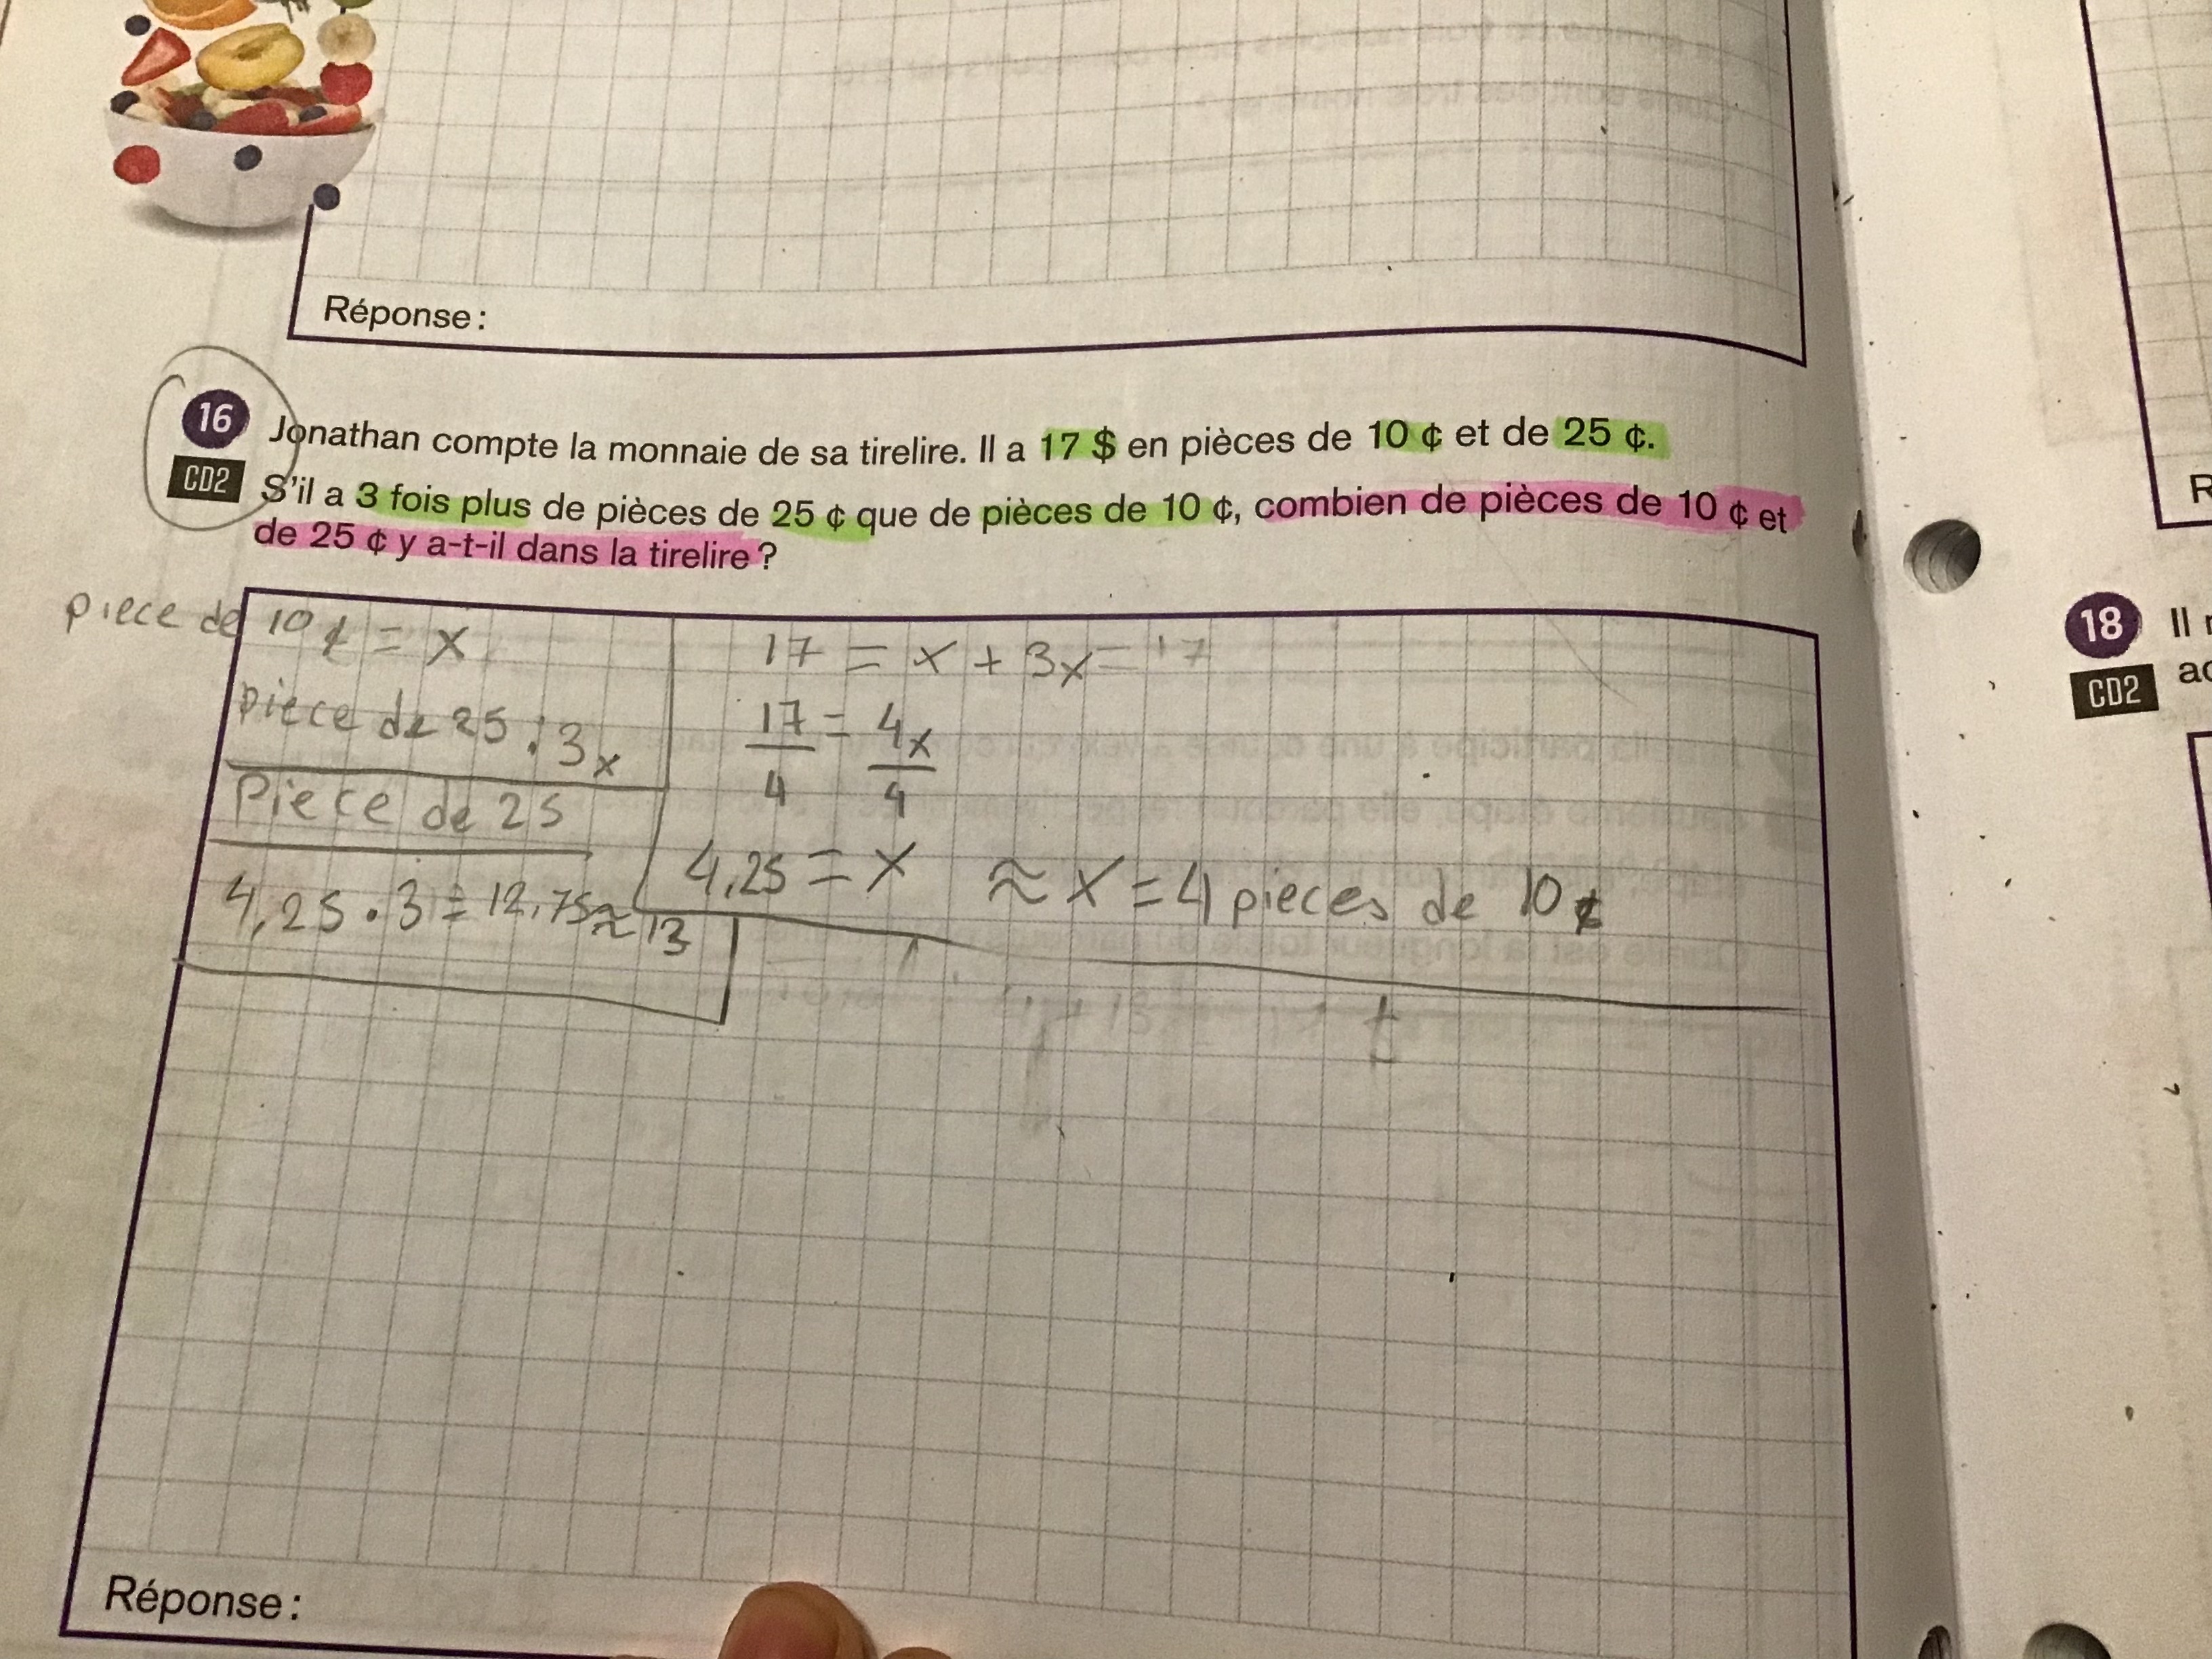 Réponse :
16 Jonathan compte la monnaie de sa tirelire. Il a 17 $ en pièces de 10 ¢ et de 25 ¢.
CD2 S'il a 3 fois plus de pièces de 25 ¢ que de pièces de 10 ¢, combien de pièces de 10 ¢ et
de 25 ¢ y a-t-il dans la tirelire ?
piece de 10 ¢ = x
piece de 25 : 3x
Piece de 25
4,25 · 3 = 12,75 ≈ 13
17 = x + 3x = 17
17 = 4x
4 4
4,25 = x ≈ x = 4 pieces de 10 ¢
Réponse :
18 Il
CD2